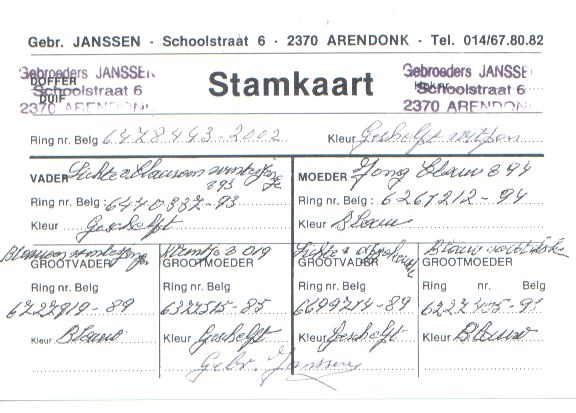 Gebr. JANSSEN - Schoolstraat 6 - 2370 ARENDONK - Tel. 014/67.80.82
Gebroeders JANSSEN
Schoolstraat 6
2370 ARENDONK
DOFFER
DUIF
Stamkaart
Gebroeders JANSSEN
Schoolstraat 6
2370 ARENDONK
Ring nr. Belg 6478493-2002 Kleur Geschelpt witpen
VADER Lichte v Blauwen 893
MOEDER Jong Blauw 894
Ring nr. Belg : 6440837-93
Ring nr. Belg : 6261212-94
Kleur Geschelpt
Kleur Blauw
019
GROOTVADER GROOTMOEDER GROOTVADER GROOTMOEDER
Ring nr. Belg Ring nr. Belg Ring nr. Belg Ring nr. Belg
6722919-89 6327515-85 6699714-89 6227435-91
Kleur Blauw Kleur Geschelpt Kleur Geschelpt Kleur Blauw
Gebr. Janssen